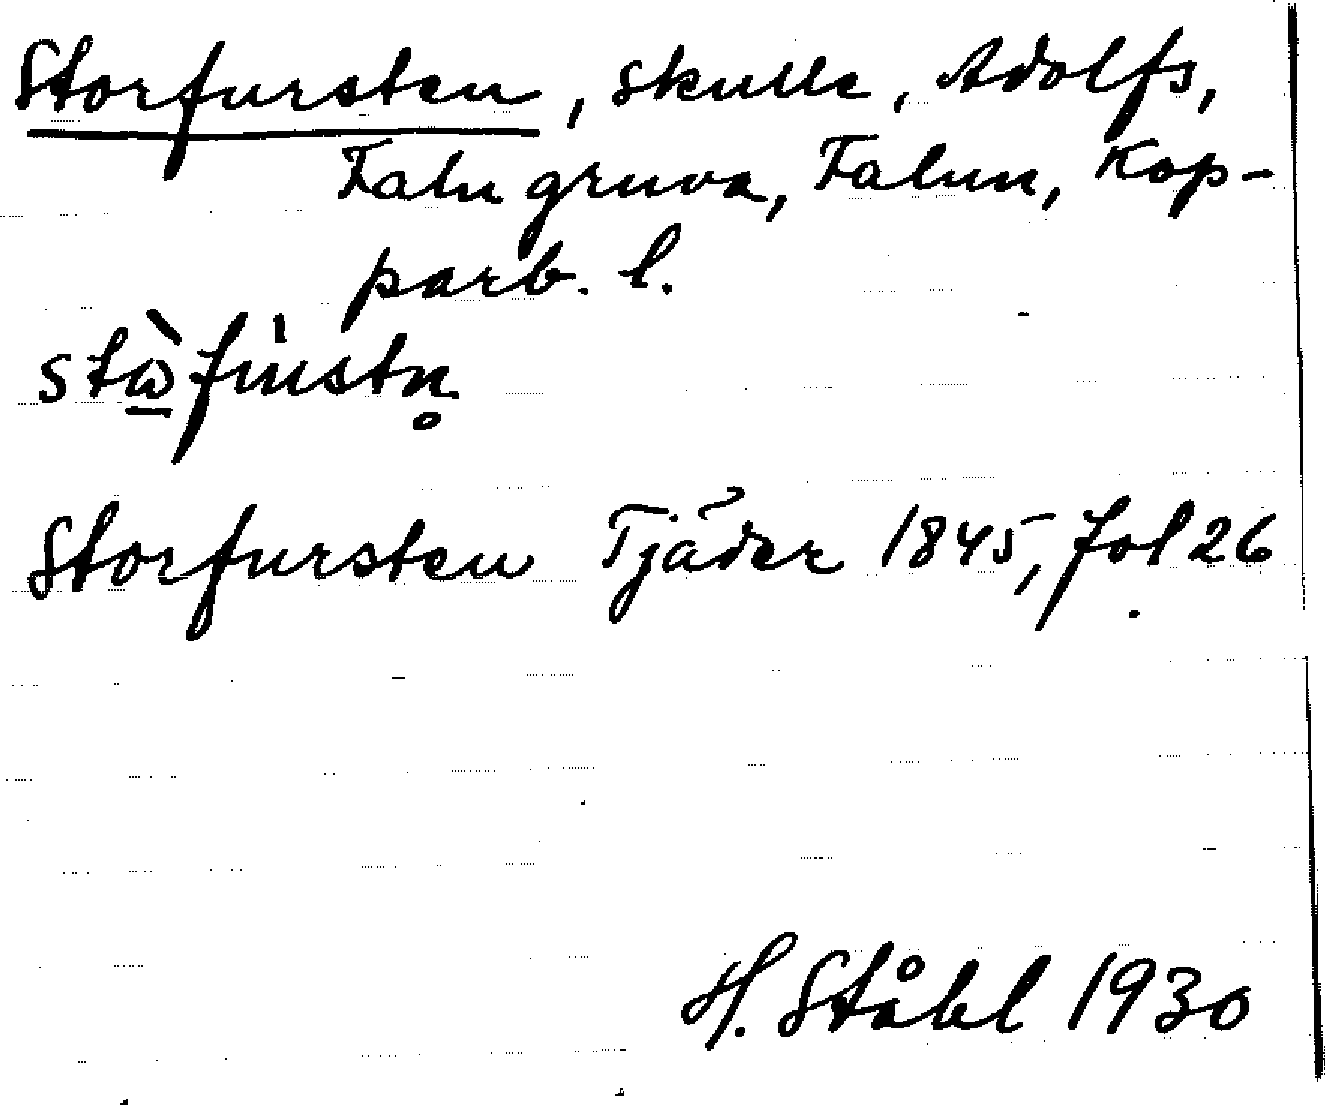 Storfursten, skulle, Adolfs,
Falu gruva, Falun, Kop-
parb. l.
Storfursten Tjäder 1845, fol 26
H. Ståhl 1930